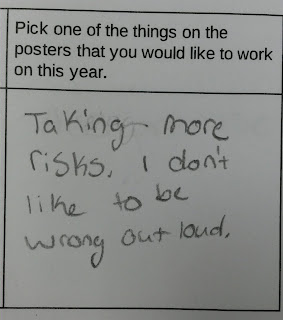 Pick one of the things on the
posters that you would like to work
on this year.
Taking more
risks. I don't
like to be
wrong out loud.